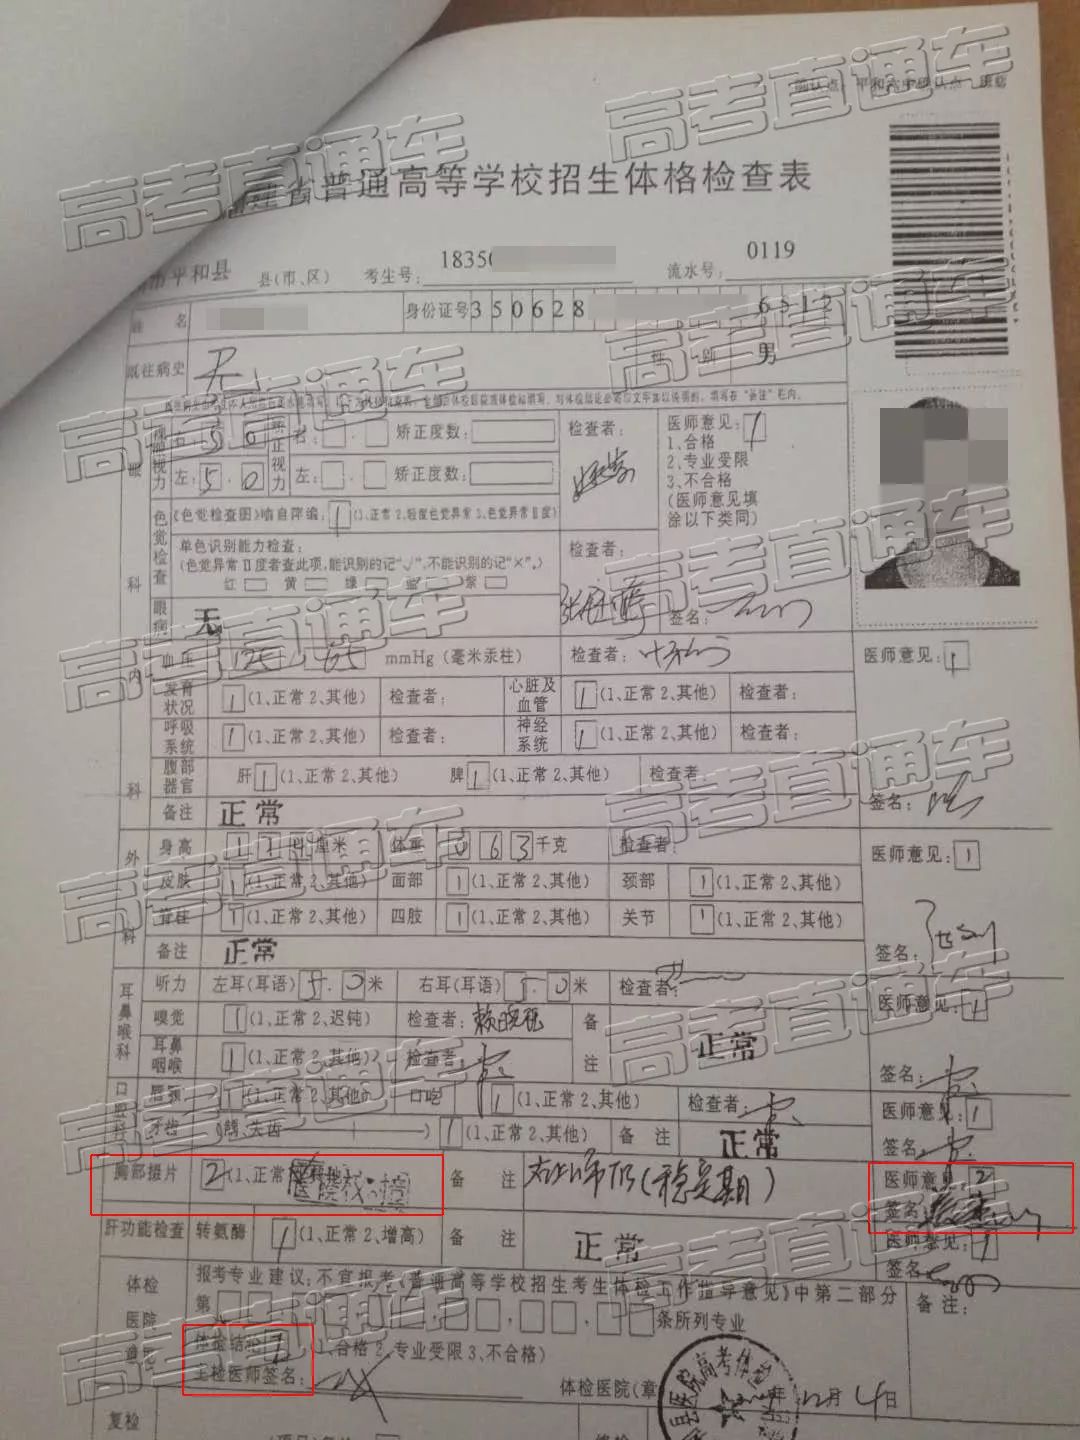 高考直通车
确认点: 平和
省普通高等学校招生体格检查表
市平和县 县(市、区) 考生号: 1835 流水号: 0119
姓 名 身份证号 350628 6512
既往病史 无 性 别 男
眼 科 右: 5.0 右: 矫正度数: 检查者: 医师意见: 1
左: 5.0 左: 矫正度数:
1.合格
2、专业受限
3、不合格
(医师意见填
涂以下类同)
色觉检查 《色觉检查图》 1 (1、正常 2、轻度色觉异常 3、色觉异常Ⅱ度)
单色识别能力检查: 检查者:
(色觉异常Ⅱ度者查此项,能识别的记"√",不能识别的记"×"。)
红 黄 绿 蓝 紫
眼病 无 签名:
内 科 血压 125 65 mmHg (毫米汞柱) 检查者: 医师意见: 1
发育状况 1 (1、正常 2、其他) 检查者: 心脏及血管 1 (1、正常 2、其他) 检查者:
呼吸系统 1 (1、正常 2、其他) 检查者: 神经系统 1 (1、正常 2、其他) 检查者:
腹部器官 肝 1 (1、正常 2、其他) 脾 1 (1、正常 2、其他) 检查者:
备注 正常 签名:
外 科 身高 174 厘米 体重 063 千克 检查者: 医师意见: 1
皮肤 1 (1、正常 2、其他) 面部 1 (1、正常 2、其他) 颈部 1 (1、正常 2、其他)
脊柱 1 (1、正常 2、其他) 四肢 1 (1、正常 2、其他) 关节 1 (1、正常 2、其他)
备注 正常 签名:
耳鼻喉科 听力 左耳(耳语) 5.0 米 右耳(耳语) 5.0 米 检查者: 医师意见: 1
嗅觉 1 (1、正常 2、迟钝) 检查者: 备注 正常
耳鼻咽喉 1 (1、正常 2、其他) 检查者: 签名:
口腔科 唇颚 1 (1、正常 2、其他) 口吃 1 (1、正常 2、其他) 检查者: 医师意见: 1
牙齿 1 (1、正常 2、其他) 备 注 正常 签名:
胸部摄片 2 (1、正常 备 注 (稳定期) 医师意见: 2
签名
肝功能检查 转氨酶 1 (1、正常 2、增高) 备 注 正常 医师意见: 1
签名
体检医院意见 报考专业建议: 不宜报考《普通高等学校招生考生体检工作指导意见》中第二部分 备注:
第 条所列专业
体检结论 (1、合格 2、专业受限 3、不合格)
主检医师签名: 体检医院(章 年 12月 4日
县医院高考体检
复检